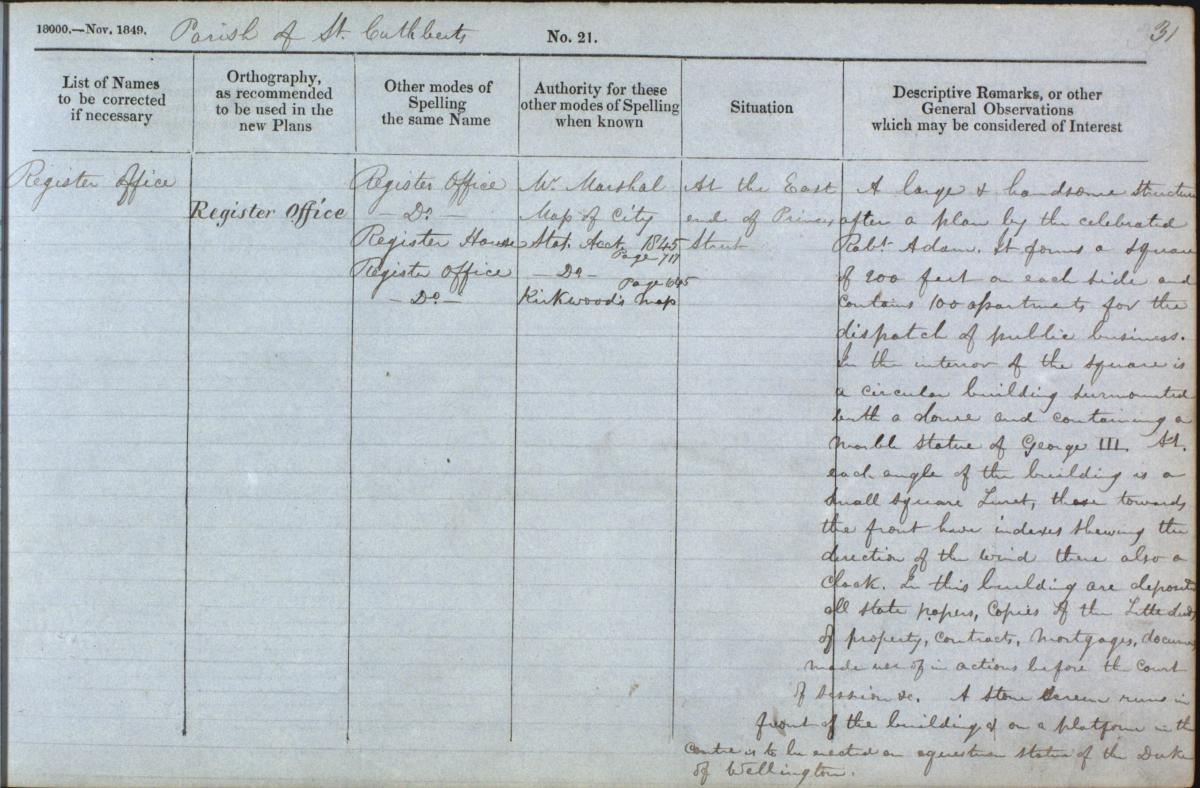 18000.—Nov. 1849. Parish of St. Cuthberts No. 21. 31
List of Names
to be corrected
if necessary
Orthography,
as recommended
to be used in the
new Plans
Other modes of
Spelling
the same Name
Authority for these
other modes of Spelling
when known
Situation
Descriptive Remarks, or other
General Observations
which may be considered of Interest
Register Office
Register Office
Register Office
— Do. —
Register House
Register Office
— Do. —
Mr. Marshal
Map of City
Stat. Acct. 1845
Page 717
— Do —
Page 645
Kirkwood's Map
At the East
end of Princes
Street
A large & handsome structure
after a plan by the celebrated
Robt Adam. It forms a square
of 200 feet on each side and
contains 100 apartments for the
dispatch of public business.
In the interior of the square is
a circular building surmounted
with a dome and containing a
marble statue of George III. At
each angle of the building is a
small square Turret, those towards
the front have indexes shewing the
direction of the wind there also a
Clock. In this building are deposited
all state papers, Copies of the Title deeds
of property, contracts, Mortgages, documents
made use of in actions before the Court
of Session &c. A stone Screen runs in
front of the building & on a platform in the
centre is to be erected an equestrian statue of the Duke
of Wellington.